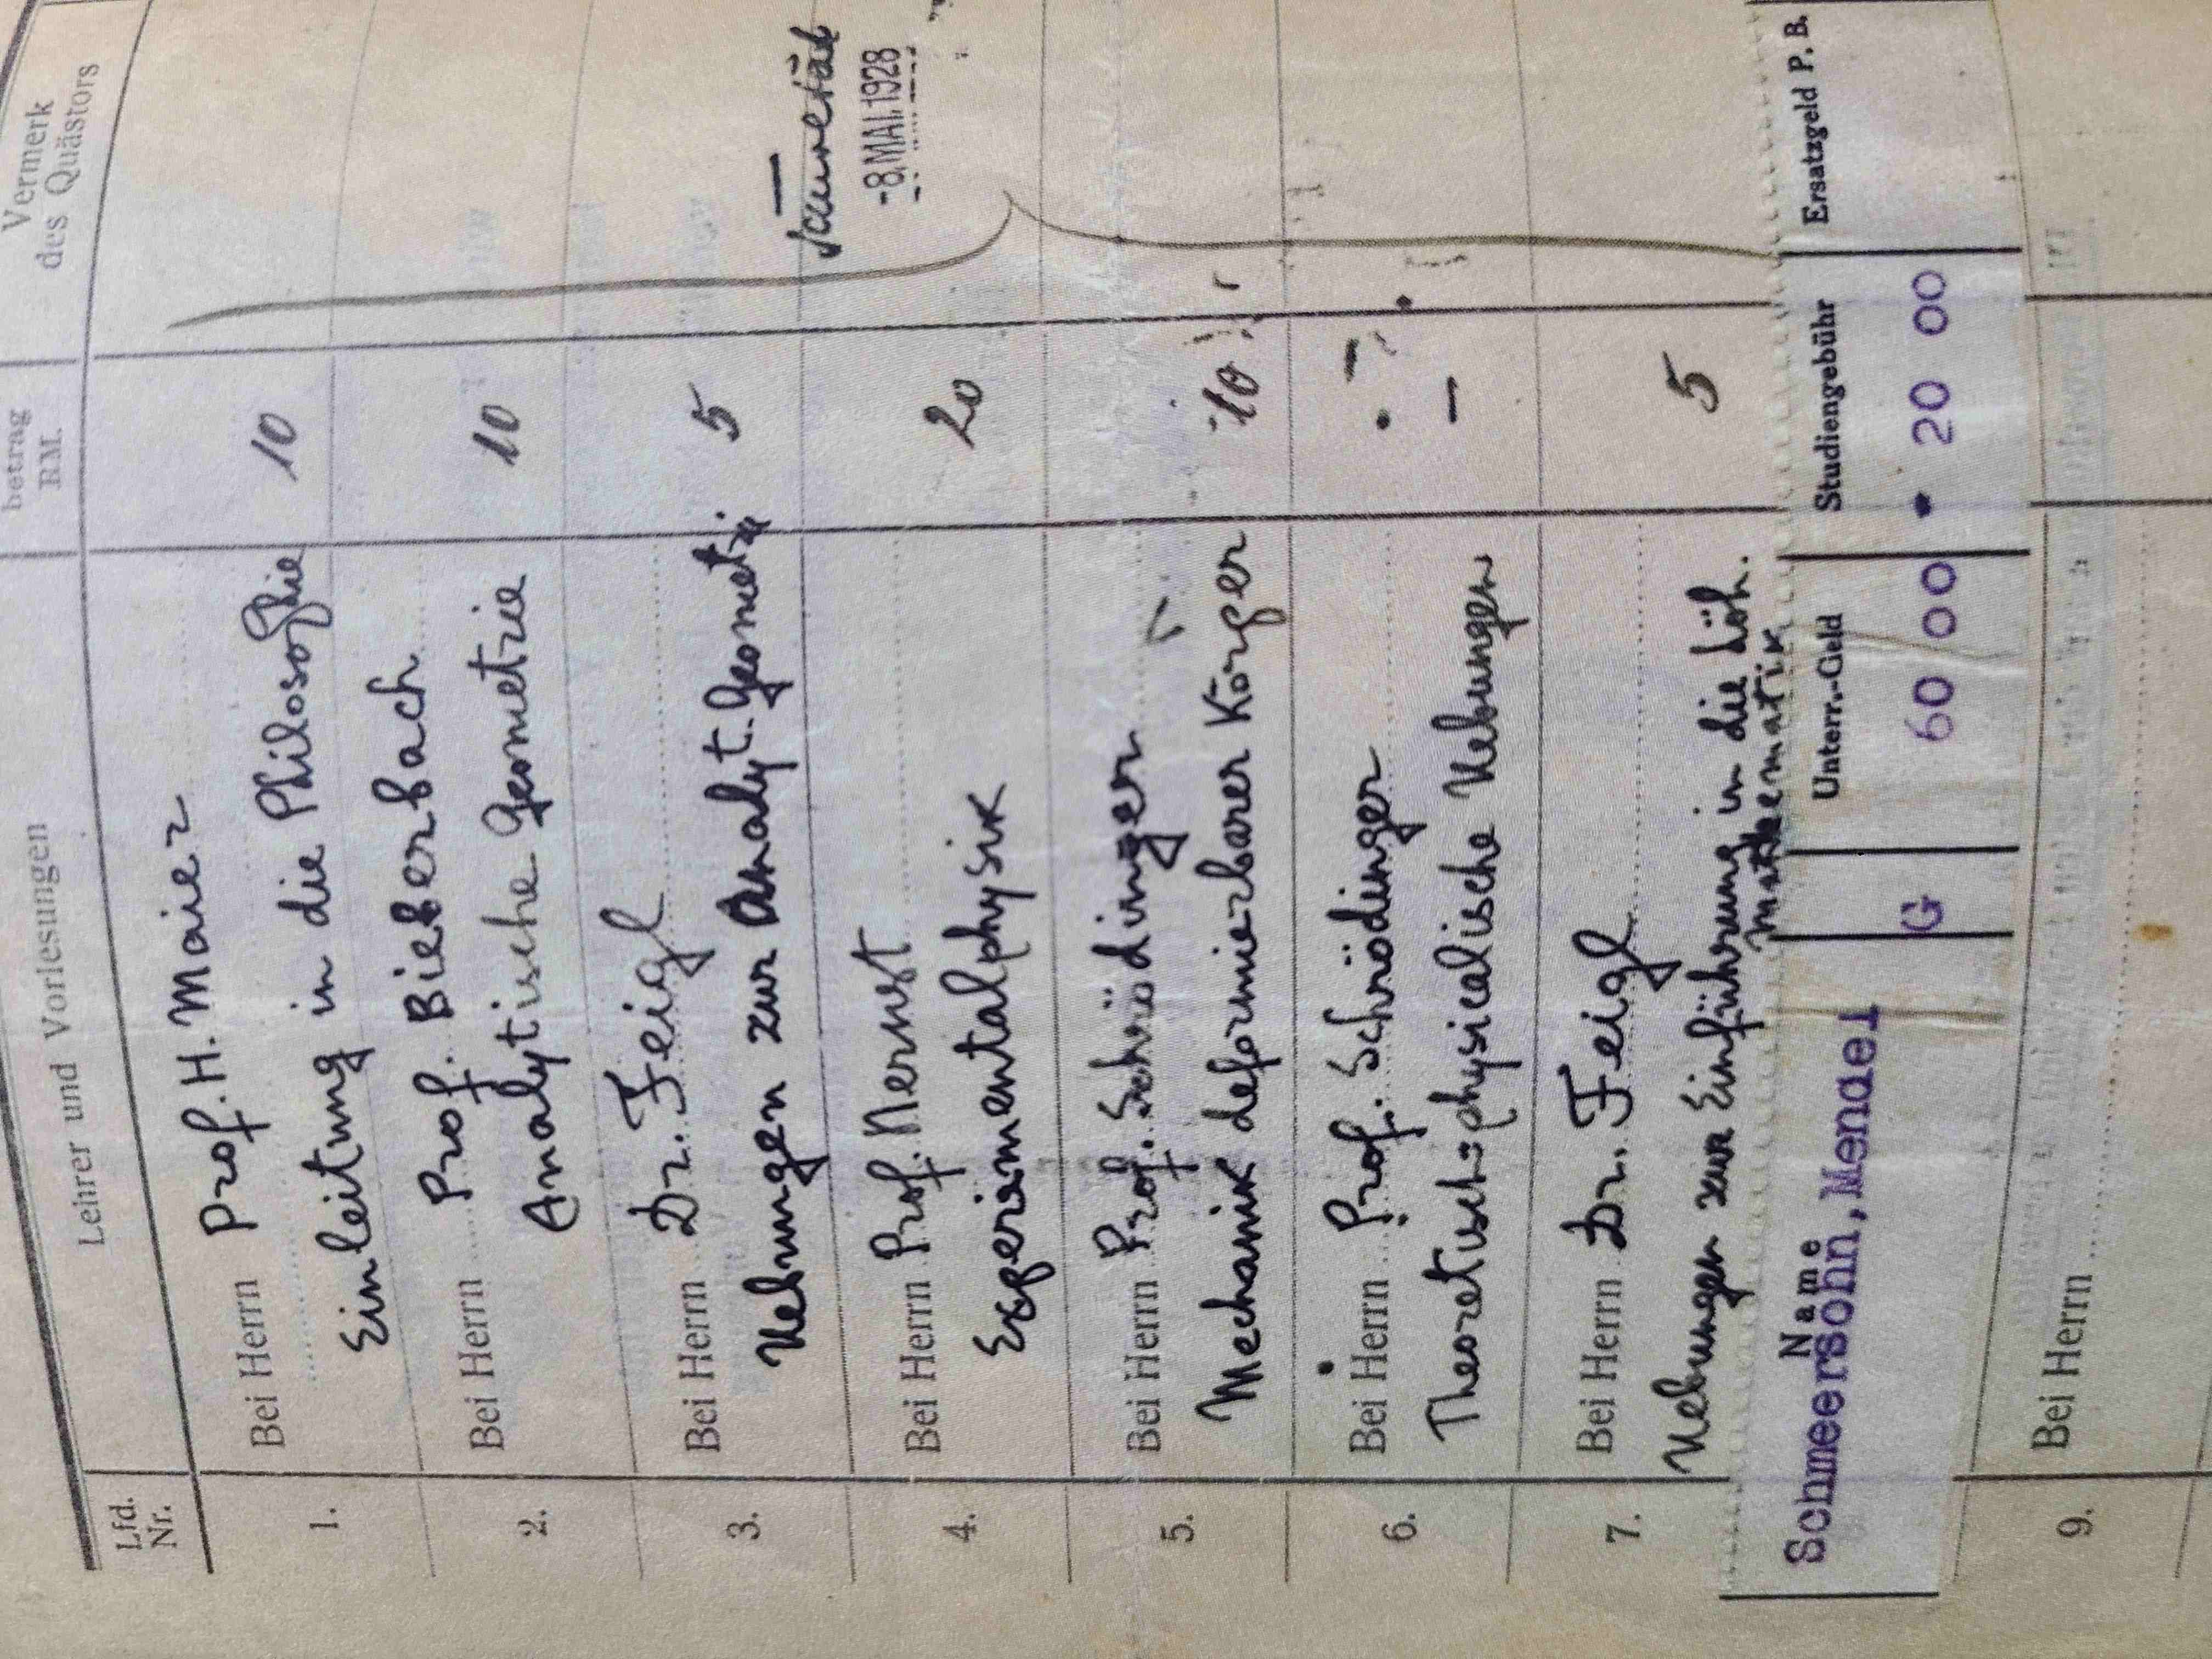 Lfd.
Nr.
Lehrer und Vorlesungen
betrag
RM.
Vermerk
des Quästors
1.
Bei Herrn Prof. H. Maier
Einleitung in die Philosophie
10
2.
Bei Herrn Prof. Bieberbach
Analytische Geometrie
10
3.
Bei Herrn Dr. Feigl
Uebungen zur Analyt. Geometrie
5
-8.MAI.1928
4.
Bei Herrn Prof. Nernst
Experimentalphysik
20
5.
Bei Herrn Prof. Schrödinger
Mechanik deformierbarer Körper
10
6.
Bei Herrn Prof. Schrödinger
Theoretisch-physicalische Uebungen
—
7.
Bei Herrn Dr. Feigl
Uebungen zur Einführung in die höh.
Mathematik
5
Name
Unterr.-Geld
Studiengebühr
Ersatzgeld P. B.
Schneersohn, Mendel
G
60 00
20 00
9.
Bei Herrn